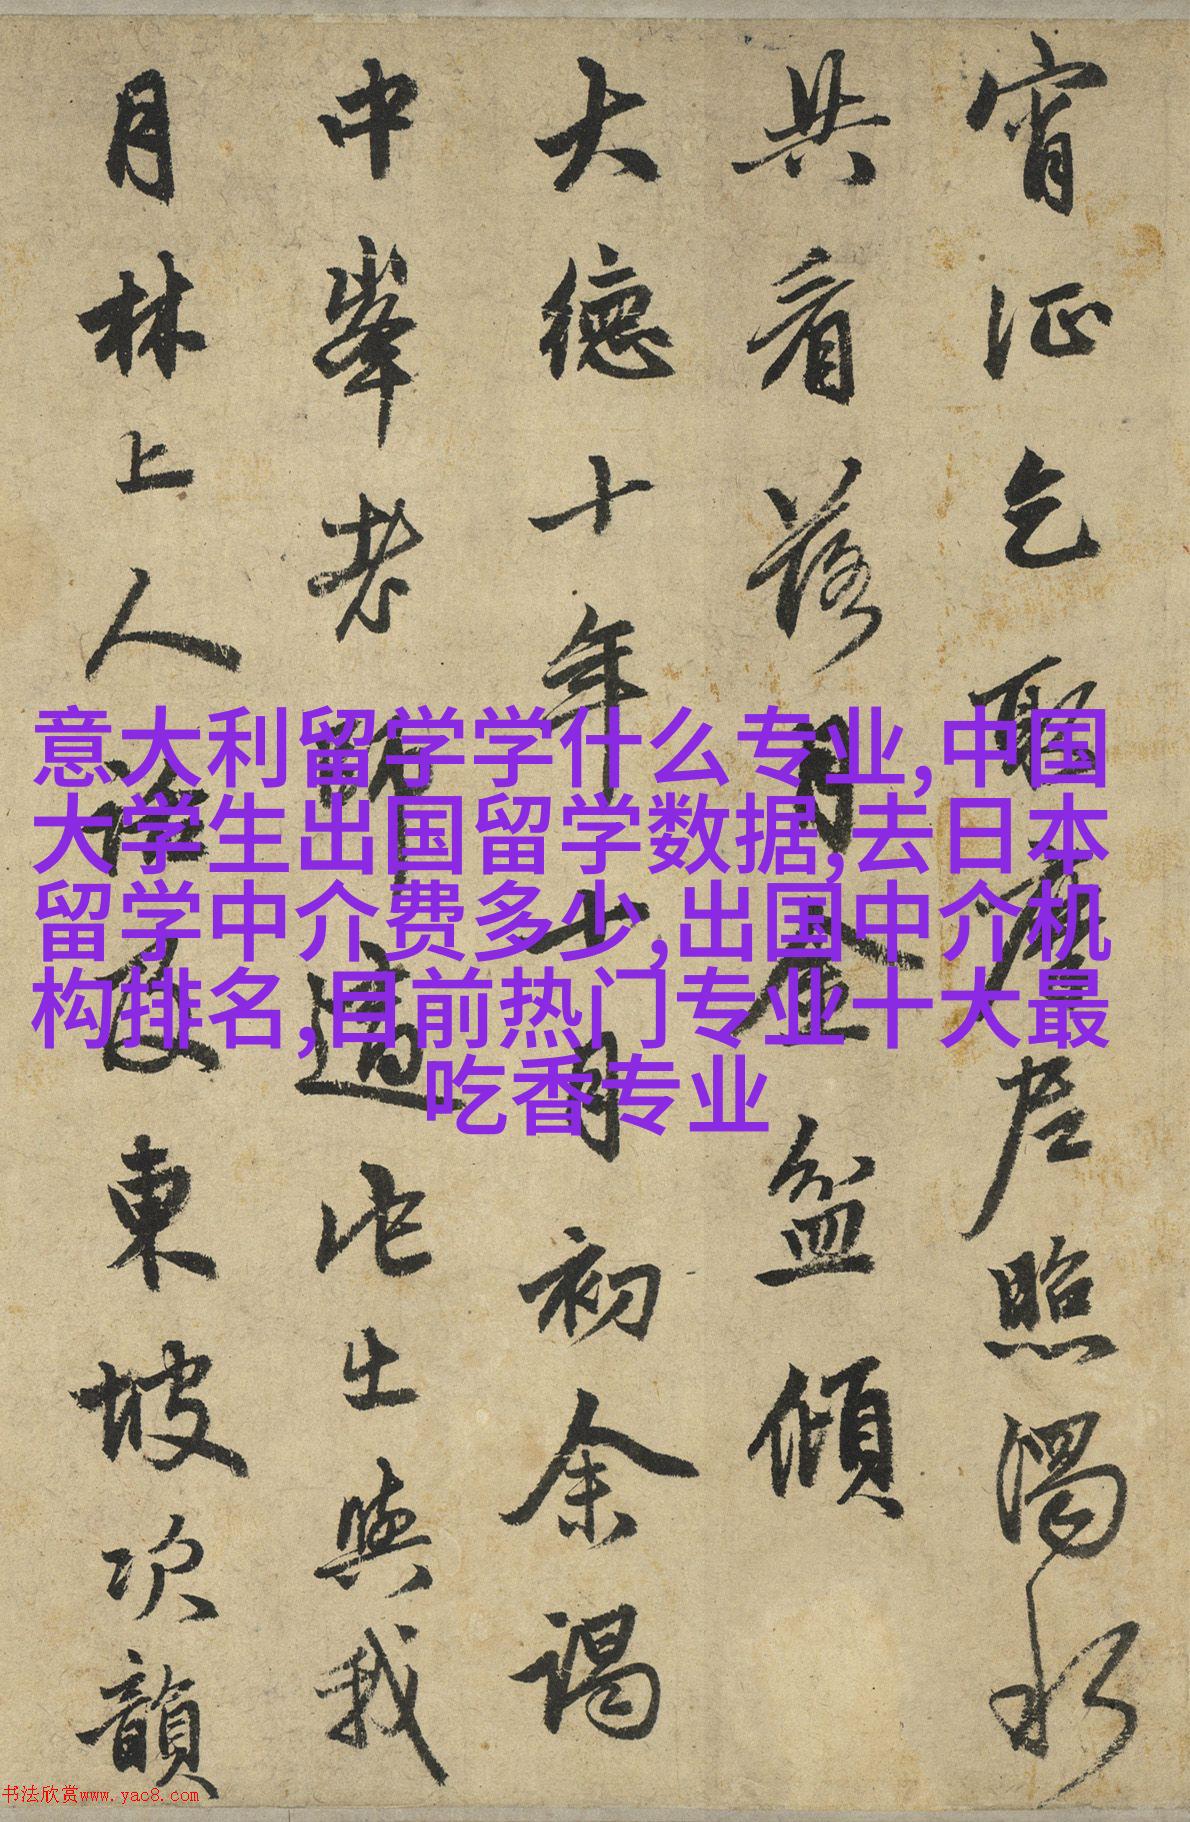 宵征乞取摩尼照濁水
共看落月金盆傾
大德十年月初余謁
中峯老師適此出與我
月林上人詩及東坡次韻
意大利留学学什么专业,中国
大学生出国留学数据,去日本
留学中介费多少,出国中介机
构排名,目前热门专业十大最
吃香专业
书法欣赏www.yac8.com